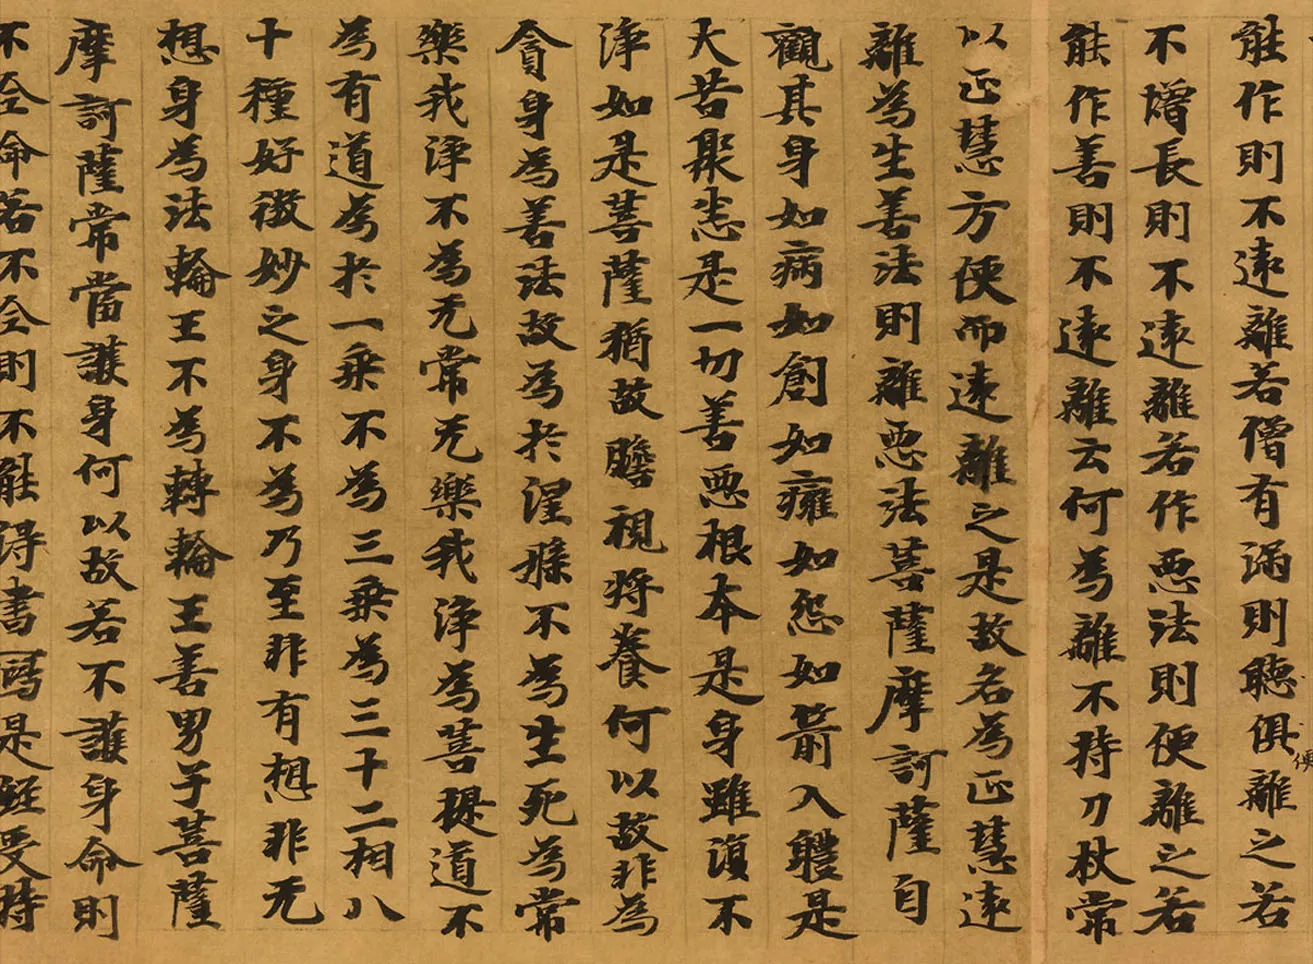 能作則不遠離若僧有漏則聽俱離之若
便
不增長則不遠離若作惡法則便離之若
能作善則不遠離云何為離不持刀杖常
以正慧方便而遠離之是故名為正慧遠
離為生善法則離惡法菩薩摩訶薩自
觀其身如病如創如癰如怨如箭入體是
大苦聚悉是一切善惡根本是身雖復不
淨如是菩薩猶故瞻視將養何以故非為
貪身為善法故為於涅槃不為生死為常
樂我淨不為无常无樂我淨為菩提道不
為有道為於一乘不為三乘為三十二相八
十種好微妙之身不為乃至非有想非无
想身為法輪王不為轉輪王善男子菩薩
摩訶薩常當護身何以故若不護身命則
不全命若不全則不能得書寫是經受持